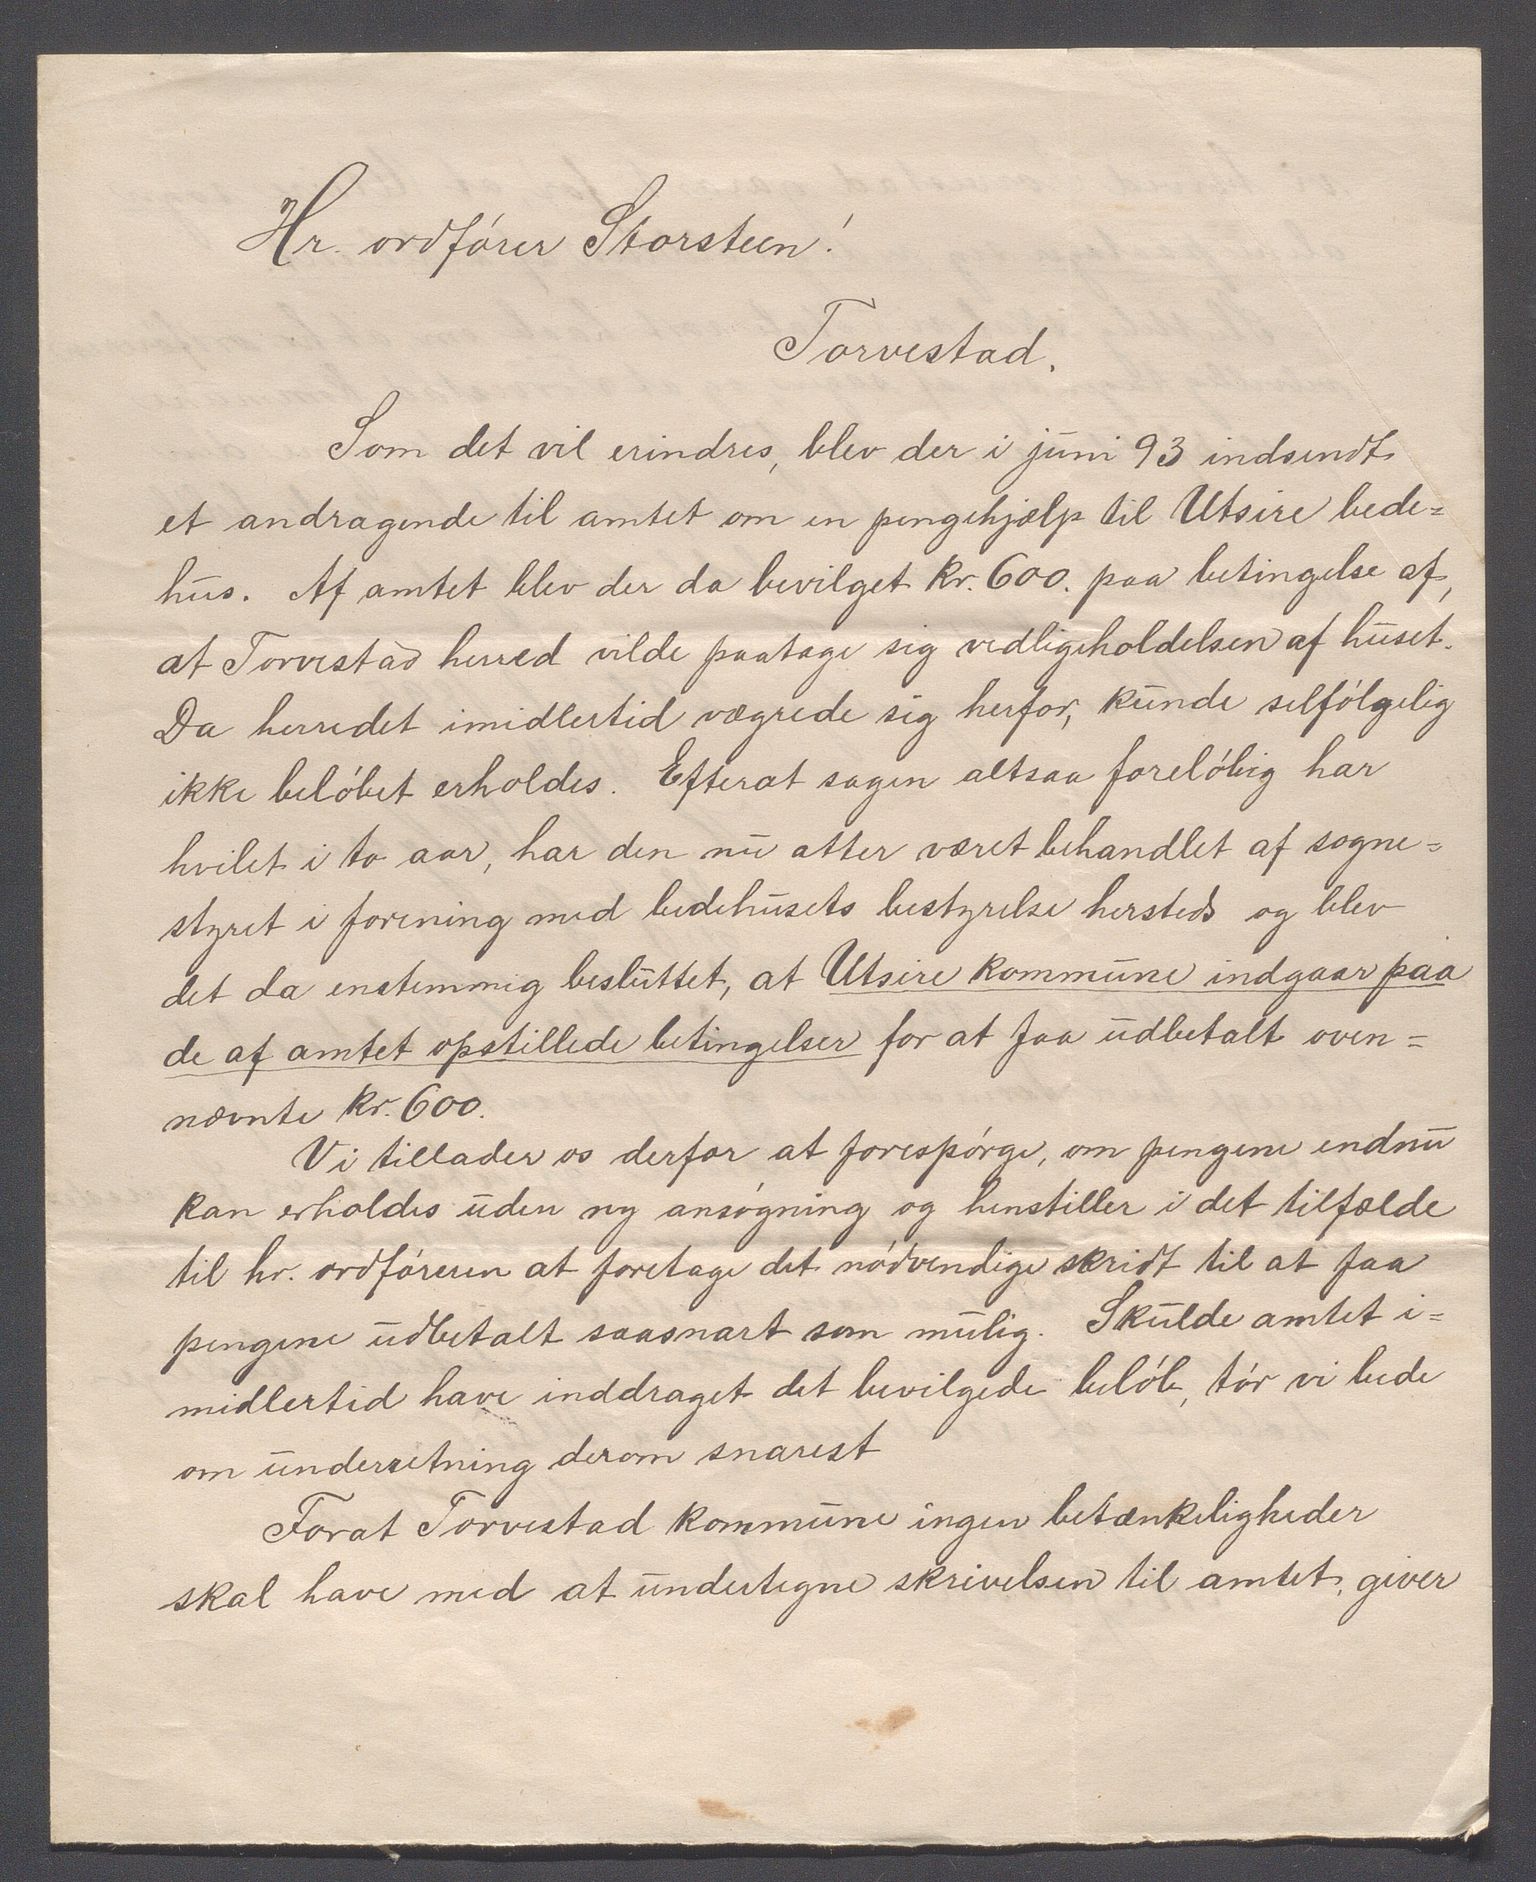 Hr. ordfórer Storsteen!
Torvestad.
Som det vil erindres, blev der i juni 93 indsendt
et andragende til amtet om en pengehjælp til Utsire bede=
hus. Af amtet blev der da bevilget kr. 600. paa betingelse af,
at Torvestad herred vilde paatage sig vedligeholdelsen af huset.
Da herredet imidlertid vægrede sig herfor, kunde selfólgelig
ikke belóbet erholdes. Efterat sagen altsaa forelóbig har
hvilet i to aar, har den nu atter været behandlet af sogne=
styret i forening med bedehusets bestyrelse hersteds og blev
det da enstemmig besluttet, at Utsire kommune indgaar paa
de af amtet opstillede betingelser for at faa udbetalt oven=
nævnte kr. 600.
Vi tillader os derfor at forespórge, om pengene endnu
kan erholdes uden ny ansógning og henstiller i det tilfælde
til hr. ordfóreren at foretage det nódvendige skridt til at faa
pengene udbetalt saasnart som mulig. Skulde amtet i=
midlertid have inddraget det bevilgede belób, tór vi bede
om underretning derom snarest
Forat Torvestad kommune ingen betænkeligheder
skal have med at undertegne skrivelsen til amtet, giver